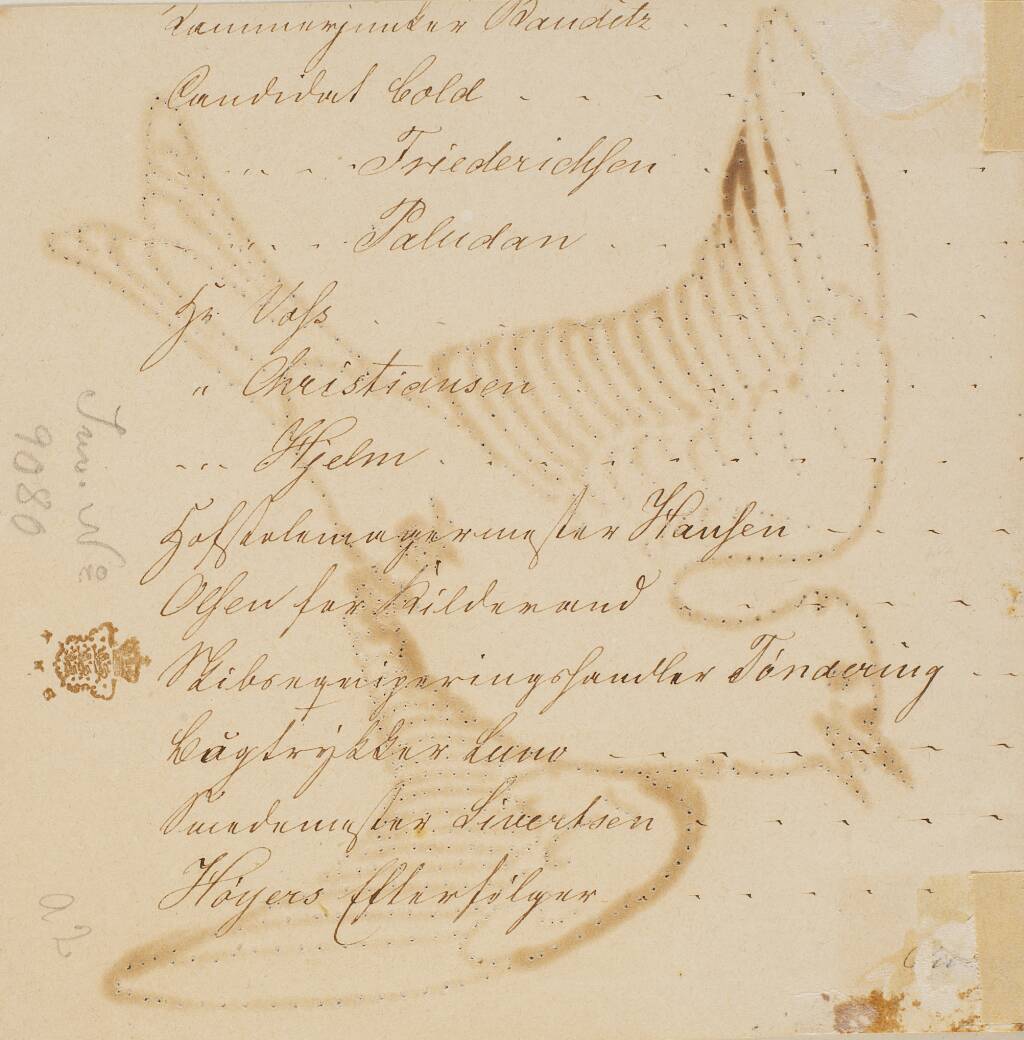 Kammerjunker Bauditz - -
Candidat Cold - - - - -
" - Friederichsen - - - -
" - Paludan - - - - -
Hr Voss - - - - -
" Christiansen - - - -
" Hjelm - - - - -
Hofstolemagermester Hansen - - -
Olsen for Kildevand - - - -
Skibsequiperingshandler Tøndering - -
Bogtrykker Luno - - - - -
Smedemester Sivertsen - - - -
Høyers Efterfølger - - - -
Inv. Nº
9080
a2